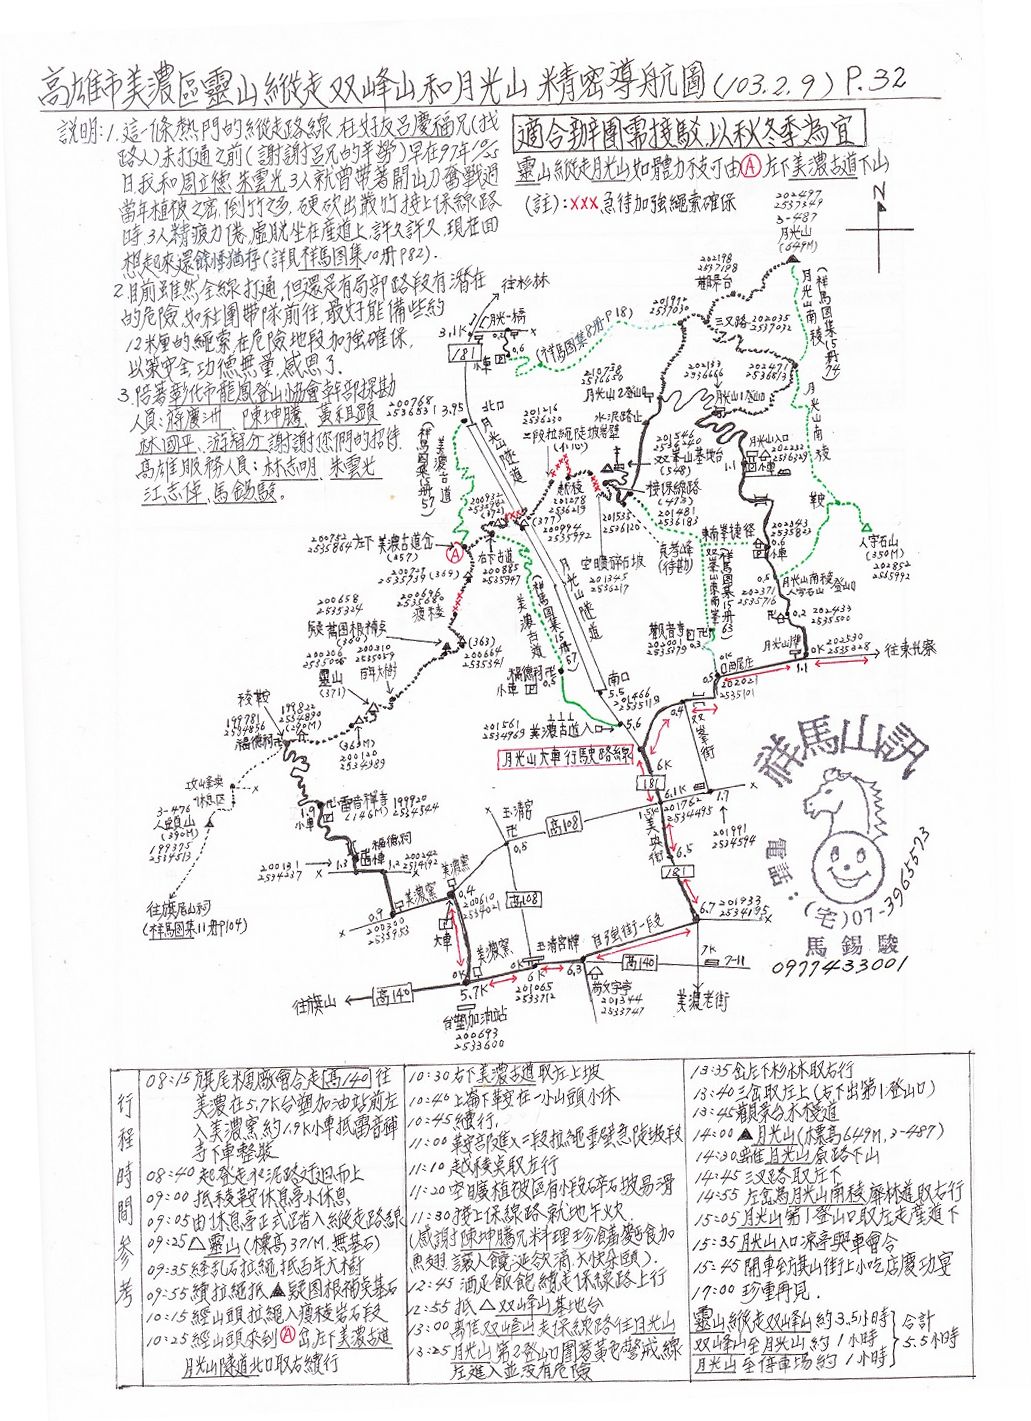 高雄市美濃區靈山縱走双峰山和月光山精密導航圖(103.2.9) P.32
說明:1.這一條熱門的縱走路線,在好友呂慶福兄(找
路人)未打通之前(謝謝呂兄的辛勞)早在97年10/25
日我和周立德.朱雲光.3人就曾帶著開山刀奮戰過
當年植被之密,倒竹之多,硬砍出叢竹接上保線路
時,3人精疲力倦,虛脫坐在産道上,許久許久,現在回
想起來還餘悸猶存(詳見祥馬圖集10册P82).
2.目前雖然全線打通,但還是有局部路段有潛在
的危險,如社團帶隊前往,最好能備些約
12米里的繩索在危險地段加強確保,
以策安全功德無量,感恩了.
3.陪著彰化市龍鳳登山協會幹部探勘
人員:蔣慶洲、陳坤騰、黃組頭
林國平、游福分謝謝您們的招待.
高雄服務人員:林志明、朱雲光
江志偉、馬錫駿。
適合辦團需接駁,以秋冬季為宜
靈山縱走月光山如體力不支可由Ⓐ左下美濃古道下山
(註):xxx急待加強繩索確保
N
202497
2537349
3-487
月光山
(649M)
202198
2537198
觀景台
201912
2537030
三叉路 202035
2537032
月光山南稜
(祥馬圖集15册74
月光山南稜
往杉林
3.1K
月光一橋
0.2
0.6
小車
181
(祥馬圖集8册P18)
210738
2536650
月光山2登山口
202133
2536666
月光山1登山口
202471
2536813
200768
2536531
3.95
北口
月光山隧道
美濃古道
(祥馬圖集15册57)
201216
2536230
三段拉繩陡坡岩壁
水泥路止
201546
2536240
双峯山基地台
(548)
越稜
201278
2536219
接保線路
(473)
201481
2536183
201535
2536120
月光山入口
202232
2536329
1.1
小車
鞍
人字石山
(350M)
202852
2535992
200932
(372)
(377)
200994
2535992
空曠碎石坡
201345
2536217
東南峯捷徑
良岑山峰
(待勘)
202343
2535823
0.6
小車
200752
2535864
左下美濃古道岔
(357)
Ⓐ
右下古道
200885
2535947
200729
2535739 (369)
200696
2535680
瘦稜
200658
2535324
疑萬图根補点
(360)
(363)
200664
2535341
200206
2535006
200310
2535059
百年大樹
靈山
(371)
美濃古道
(祥馬圖集15册57
月光山隧道
双峯山東南峯
(祥馬圖集15册63)
202371
2535716
0.5
月光山南稜
人字石山 登山口
0.2
202433
2535500
觀音亭
202001
2535179
0.3
月光山牌
0K
202530
2535328
1.1
往東光寮
0K
田尾庄
0.5
202021
2535101
福德祠
小車
0.5
南口
5.5
201466
2535119
0.4
201561
2534969
美濃古道入口
5.6
月光山大車行駛路線
双峯街
6K
181
6.1K
1.5K
201762
2534495
1.7
201991
2534594
稜鞍
199781
2534856
福德祠
199822
2534890
(290M)
(363M)
200120
2534989
攻山峯央
休息區
3-476
人頭山
(390M)
199395
2534513
往旗尾山祠
(祥馬圖集11册P104)
雷音禪寺
199920
2534544
(146M)
1.9
小車
福德祠
車
1.3
1.2
200242
2514192
200131
2534237
0.9
200300
2533953
美濃窯
美濃窯
0.4
200610
2534021
大車
玉清宮
0.5
高108
高108
美中街
6.5
181
6.7
201933
2534195
7K
7-11
美濃老街
美濃窯
0K
5.7K
台塑加油站
200693
2533600
往旗山
高140
0K
玉清宮牌
6K
201065
2533712
6.3
自強街一段
敬字亭
201344
2533747
高140
祥馬山訊
電話:
(宅)07-3965573
馬錫駿
0977433001
行程時間參考
08:15旗尾米團廠會合走高140往
美濃在5.7K台塑加油站前左
入美濃窯約1.9K小車抵雷音禪
寺下車整裝
08:40起登走水泥路迂迴而上
09:00抵稜鞍休息亭小休息
09:05由休息亭正式踏入縱走路線
09:25△靈山(標高371M.無基石)
09:35經乱石拉繩抵百年大樹
09:55續拉繩抵▲疑图根補点基石
10:15經山頭拉繩入瘦稜岩石段
10:25經山頭來到Ⓐ岔左下美濃古道
月光山隧道北口取右續行
10:30右下美濃古道取左上坡
10:40上崙下鞍在一小山頭小休
10:45續行.
11:00鞍部進入三段拉繩垂壁急陡坡段
11:10越稜央取左行
11:20空曠植被區有小段碎石坡易滑
11:30接上保線路就地午炊
(感謝陳坤騰兄料理珍饈酸食加
魚翅讓人饞涎欲滴,大快朵頤).
12:45酒足飯飽續走保線路上行
12:55抵△双峰山基地台
13:00離隹双峰山走保線路往月光山
13:25月光山第2登山口圍著黃色警戒線
左進入並沒有危險
13:35岔左下杉林取右行
13:40三岔取左上(右下出第1登山口)
13:45觀景台木棧道
14:00▲月光山(標高649M,3-487)
14:30離月光山原路下山
14:45三叉路取左下
14:55左岔為月光山南稜廨林道取右行
15:05月光山第1登山口取左走産道下
15:35月光山入口涼亭與車會合
15:45開車到旗山街上小吃店慶功宴
17:00珍重再見.
靈山縱走双峰山約3.5小時
双峰山至月光山約1小時
月光山至停車場約1小時
合計
5.5小時